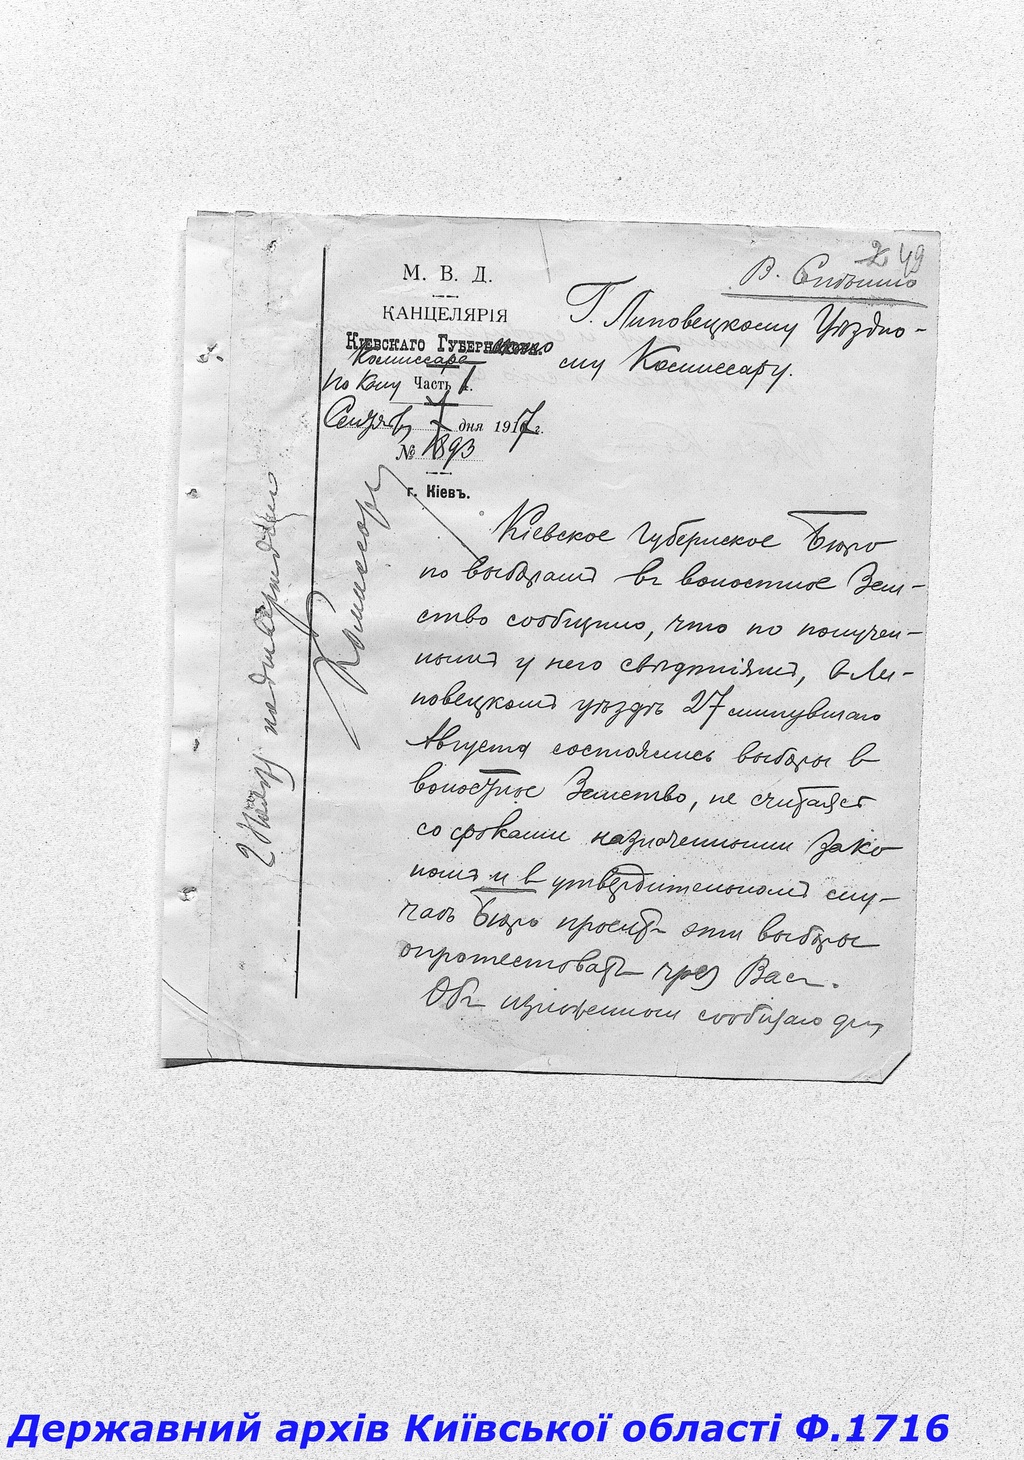 249
В. Спѣшно
М. В. Д.
КАНЦЕЛЯРІЯ
Кіевскаго Губернского
Комиссара
Часть 1.
Сентяб. 7 дня 1917 г.
№ 1893
г. Кіевъ.
Г. Липовецкому Уѣздно-
му Комиссару.
Кіевское Губернское Бюро
по выборамъ въ волостное Зем-
ство сообщило, что по получен-
нымъ у него свѣдѣніямъ, в Ли-
повецкомъ уѣздѣ 27 минувшаго
Августа состоялись выборы в
волостное Земство, не считаясь
со сроками назначенными Зако
номъ и в утвердительномъ слу-
чаѣ Бюро проситъ эти выборы
опротестовать чрез Васъ.
Объ изложенном сообщаю для
Комиссару
Державний архів Київської області Ф.1716